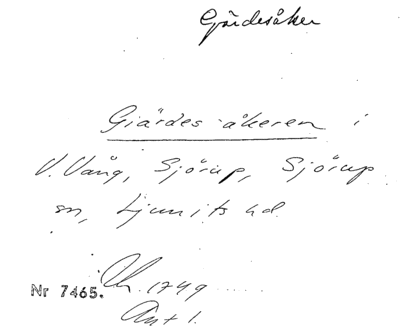 Gärdesåker
Giärdes-åkeren i
V. Vång, Sjörup, Sjörup
sn, Ljunits hd
Nr 7465. Ch. 1749
Ant 1.